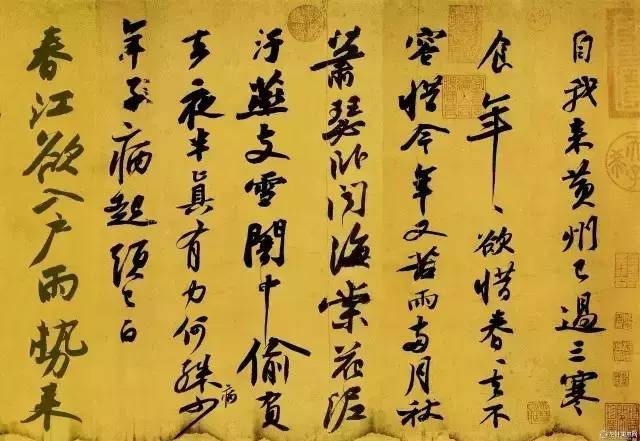 自我来黄州已過三寒
食年〻欲惜春〻去不
容惜今年又苦雨兩月秋
蕭瑟卧聞海棠花泥
汙燕支雪闇中偷負
去夜半真有力何殊少
病
年子病起頭已白
春江欲入户雨势来